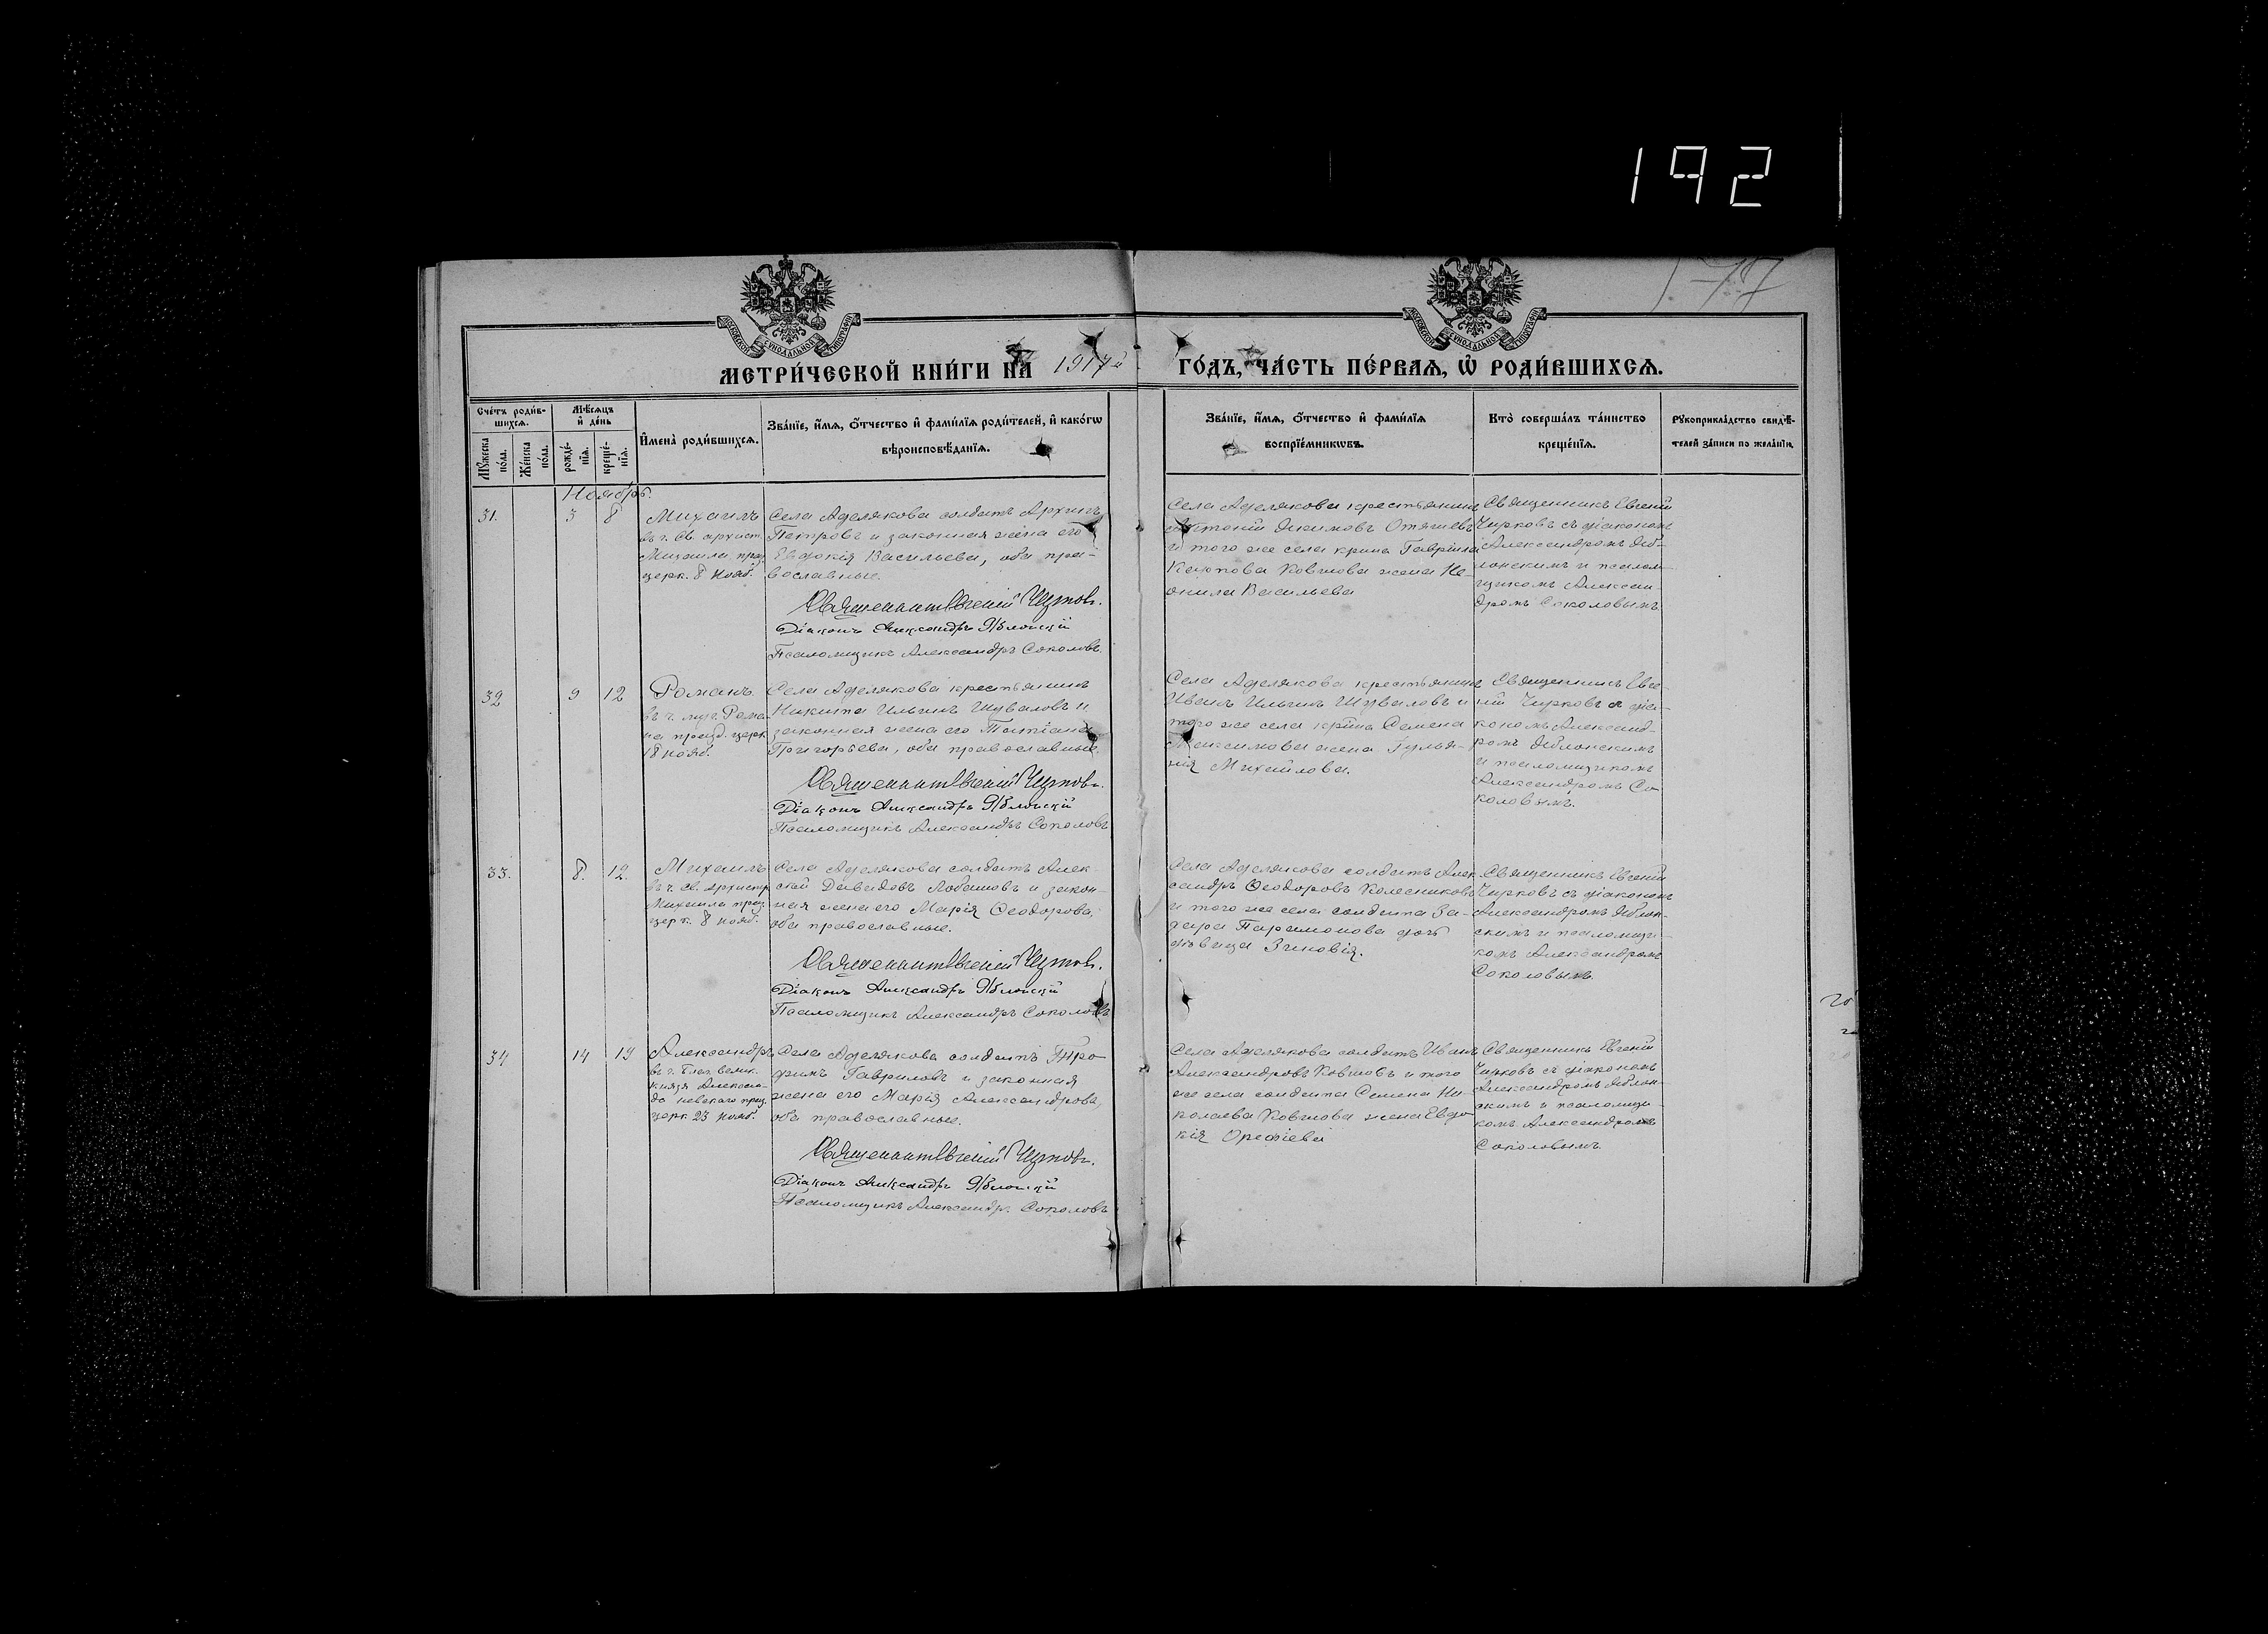 192
177
МОСКОВСКОЙ СѴНОДАЛЬНОЙ ТИПОГРАФІИ
МОСКОВСКОЙ СѴНОДАЛЬНОЙ ТИПОГРАФІИ
МЕТРИ́ЧЕСКОЙ КНИ́ГИ НА 1917й ГО́ДЪ, ЧА́СТЬ ПЕ́РВАѦ, Ѡ РОДИ́ВШИХСѦ.
Сче́тъ роди́в-
шихсѧ.
Мѣ́сѧцъ
и҆ де́нь
Мꙋ́жеска
по́ла.
Же́нска
по́ла.
рожде́-
нїѧ.
креще́-
нїѧ.
И҆мена̀ роди́вшихсѧ.
Зва́нїе, и҆́мѧ, ѻ҆́тчество и҆ фами́лїѧ роди́телей, и҆ како́гѡ
вѣроисповѣ́данїѧ.
Зва́нїе, и҆́мѧ, ѻ҆́тчество и҆ фами́лїѧ
воспрїе́мникѡвъ.
Кто̀ соверша́лъ та́инство
креще́нїѧ.
Рꙋкоприкла́дство свидѣ́-
телей за́писи по жела́нїю.
Ноябрь.
31.
3
8
Михаилъ
въ ч. св. архист.
Михаила праз.
церк. 8 нояб.
Села Аделякова солдатъ Архипъ
Петровъ и законная жена его
Евдокія Васильева, оба пра-
вославные.
Священникъ Евгеній Чирковъ.
Діаконъ Александръ Яблонскій
Псаломщикъ Александръ Соколовъ.
Села Аделякова крестьянинъ
Антоній Акимовъ
и того же села крнна Гавріила
Карпова Ковшова жена Не-
онила Васильева
Священникъ Евгеній
Чирковъ съ діакономъ
Александромъ Ябл-
онскимъ и псалом-
щикомъ Алексан-
дромъ Соколовымъ.
32
9
12
Романъ
въ ч. муч. Рома-
на празд. церк.
18 нояб.
Села Аделякова крестьянинъ
Никита Ильинъ Шуваловъ и
законная жена его Татіана
Григорьева, оба православные.
Священникъ Евгеній Чирковъ.
Діаконъ Александръ Яблонскій
Псаломщикъ Александръ Соколовъ
Села Аделякова крестьянинъ
Иванъ Ильинъ Шуваловъ и
того же села крнна Семена
Максимова жена Гулья-
нія Михайлова.
Священникъ Евге-
ній Чирковъ съ діа-
кономъ Александ-
ромъ Яблонскимъ
и псаломщикомъ
Александромъ Со-
коловымъ.
33.
8.
12.
Михаилъ
въ ч. св. архистр.
Михаила праз.
церк. 8 нояб.
Села Аделякова солдатъ Алек-
сѣй Давыдовъ Лобановъ и закон-
ная жена его Марія Ѳеодорова,
оба православные.
Священникъ Евгеній Чирковъ.
Діаконъ Александръ Яблонскій
Псаломщикъ Александръ Соколовъ
Села Аделякова солдатъ Алек-
сандръ Ѳеодоровъ Колесниковъ
и того же села солдата За-
хара Парамонова дочь
дѣвица Зиновія.
Священникъ Евгеній
Чирковъ съ діакономъ
Александромъ Яблон-
скимъ и псаломщи-
комъ Александромъ
Соколовымъ.
34
14
19
Александръ
въ ч. благ. велик.
князя Алексан-
др. невскаго праз.
церк. 23 нояб.
Села Аделякова солдатъ Тро-
фимъ Гавриловъ и законная
жена его Марія Александрова,
оба православные.
Священникъ Евгеній Чирковъ.
Діаконъ Александръ Яблонскій
Псаломщикъ Александръ Соколовъ
Села Аделякова солдатъ Иванъ
Александровъ Ковшовъ и того
же села солдата Семена Ни-
колаева Ковшова жена Евдо-
кія Орефіева
Священникъ Евгеній
Чирковъ съ діакономъ
Александромъ Яблон-
скимъ и псаломщи-
комъ Александромъ
Соколовымъ.